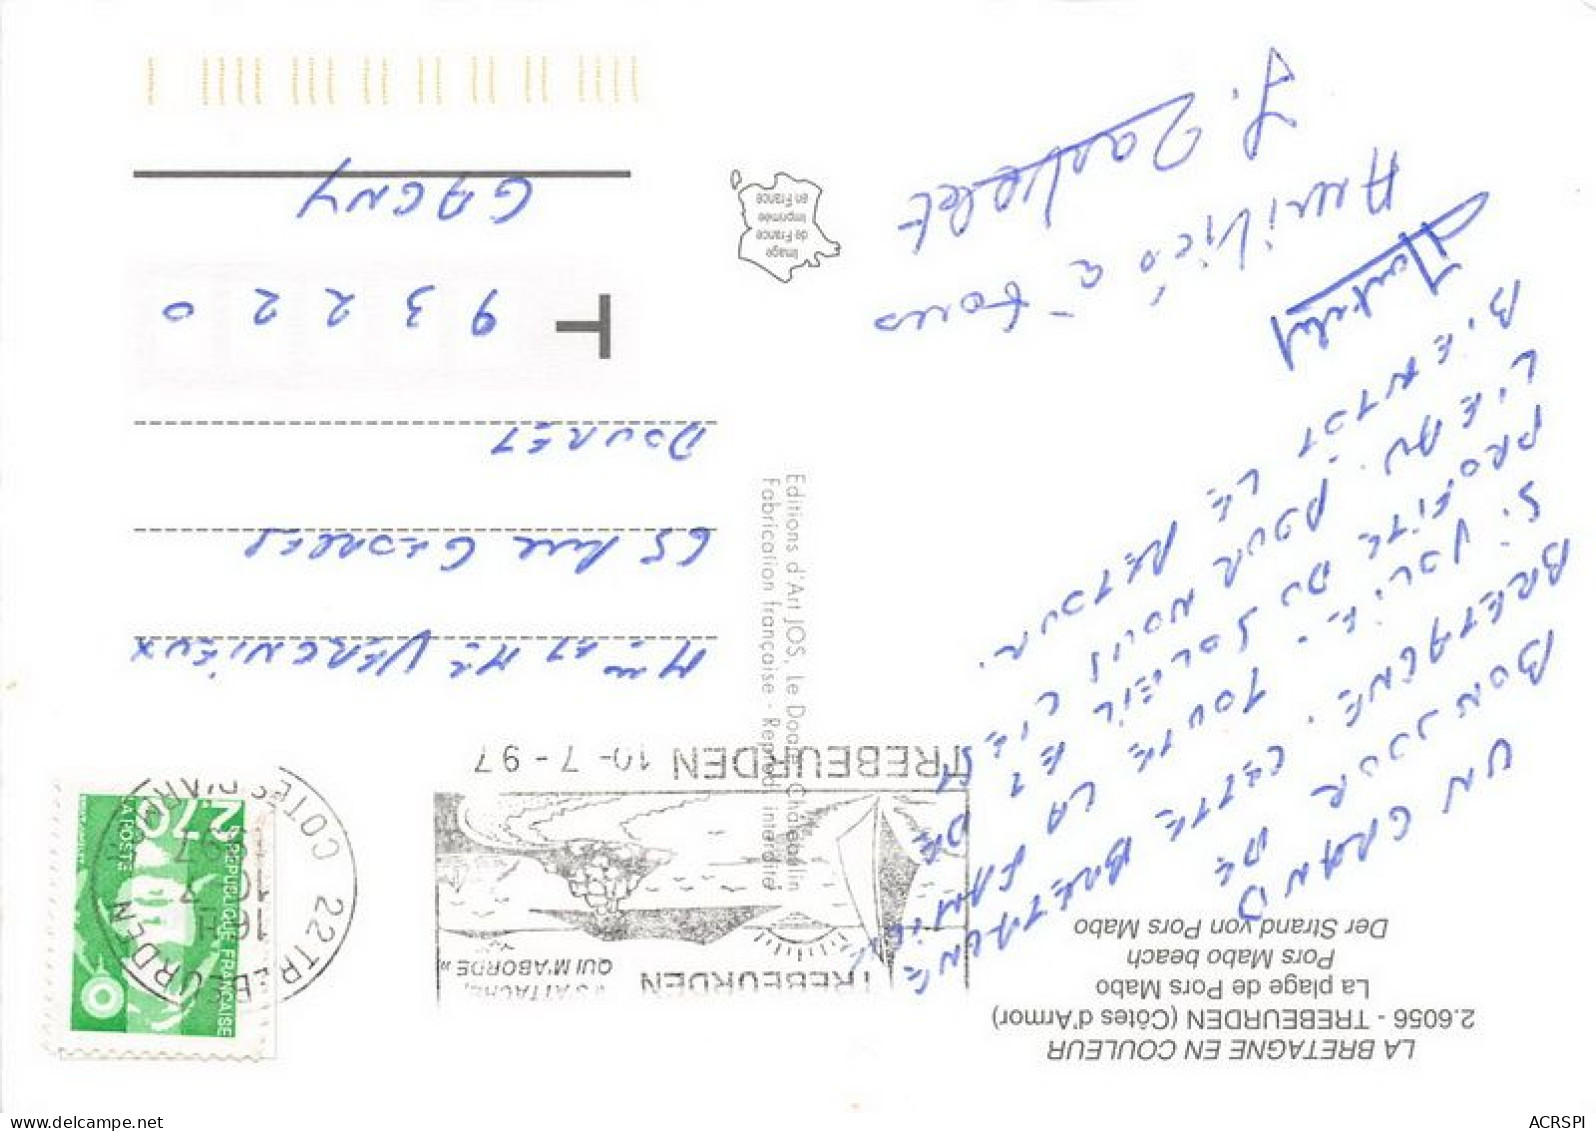 LA BRETAGNE EN COULEUR
2.6056 - TREBEURDEN (Côtes d'Armor)
La plage de Pors Mabo
Pors Mabo beach
Der Strand von Pors Mabo
UN GRAND
BONJOUR DE
BRETAGNE. CETTE BRETAGNE
SI JOLIE. TOUTE LA FAMILLE
PROFITE DU SOLEIL ET DE
L'EAU. POUR NOUS C'EST
BIENTOT LE RETOUR.
Amitiés à tous
Editions d'Art JOS, le Doaré, Châteaulin
Fabrication française - Reprod. interdite
Image
de France
Imprimée
en France
TREBEURDEN
QUI M'ABORDE »
TREBEURDEN 10-7-97
22 TREBEURDEN
COTES D'ARMOR
16H
10-7
1997
REPUBLIQUE FRANÇAISE
2,70
LA POSTE
Mme ET Mr VERGNIEUX
65 Rue Georges
DOURET
93220
GAGNY
ACRSPI